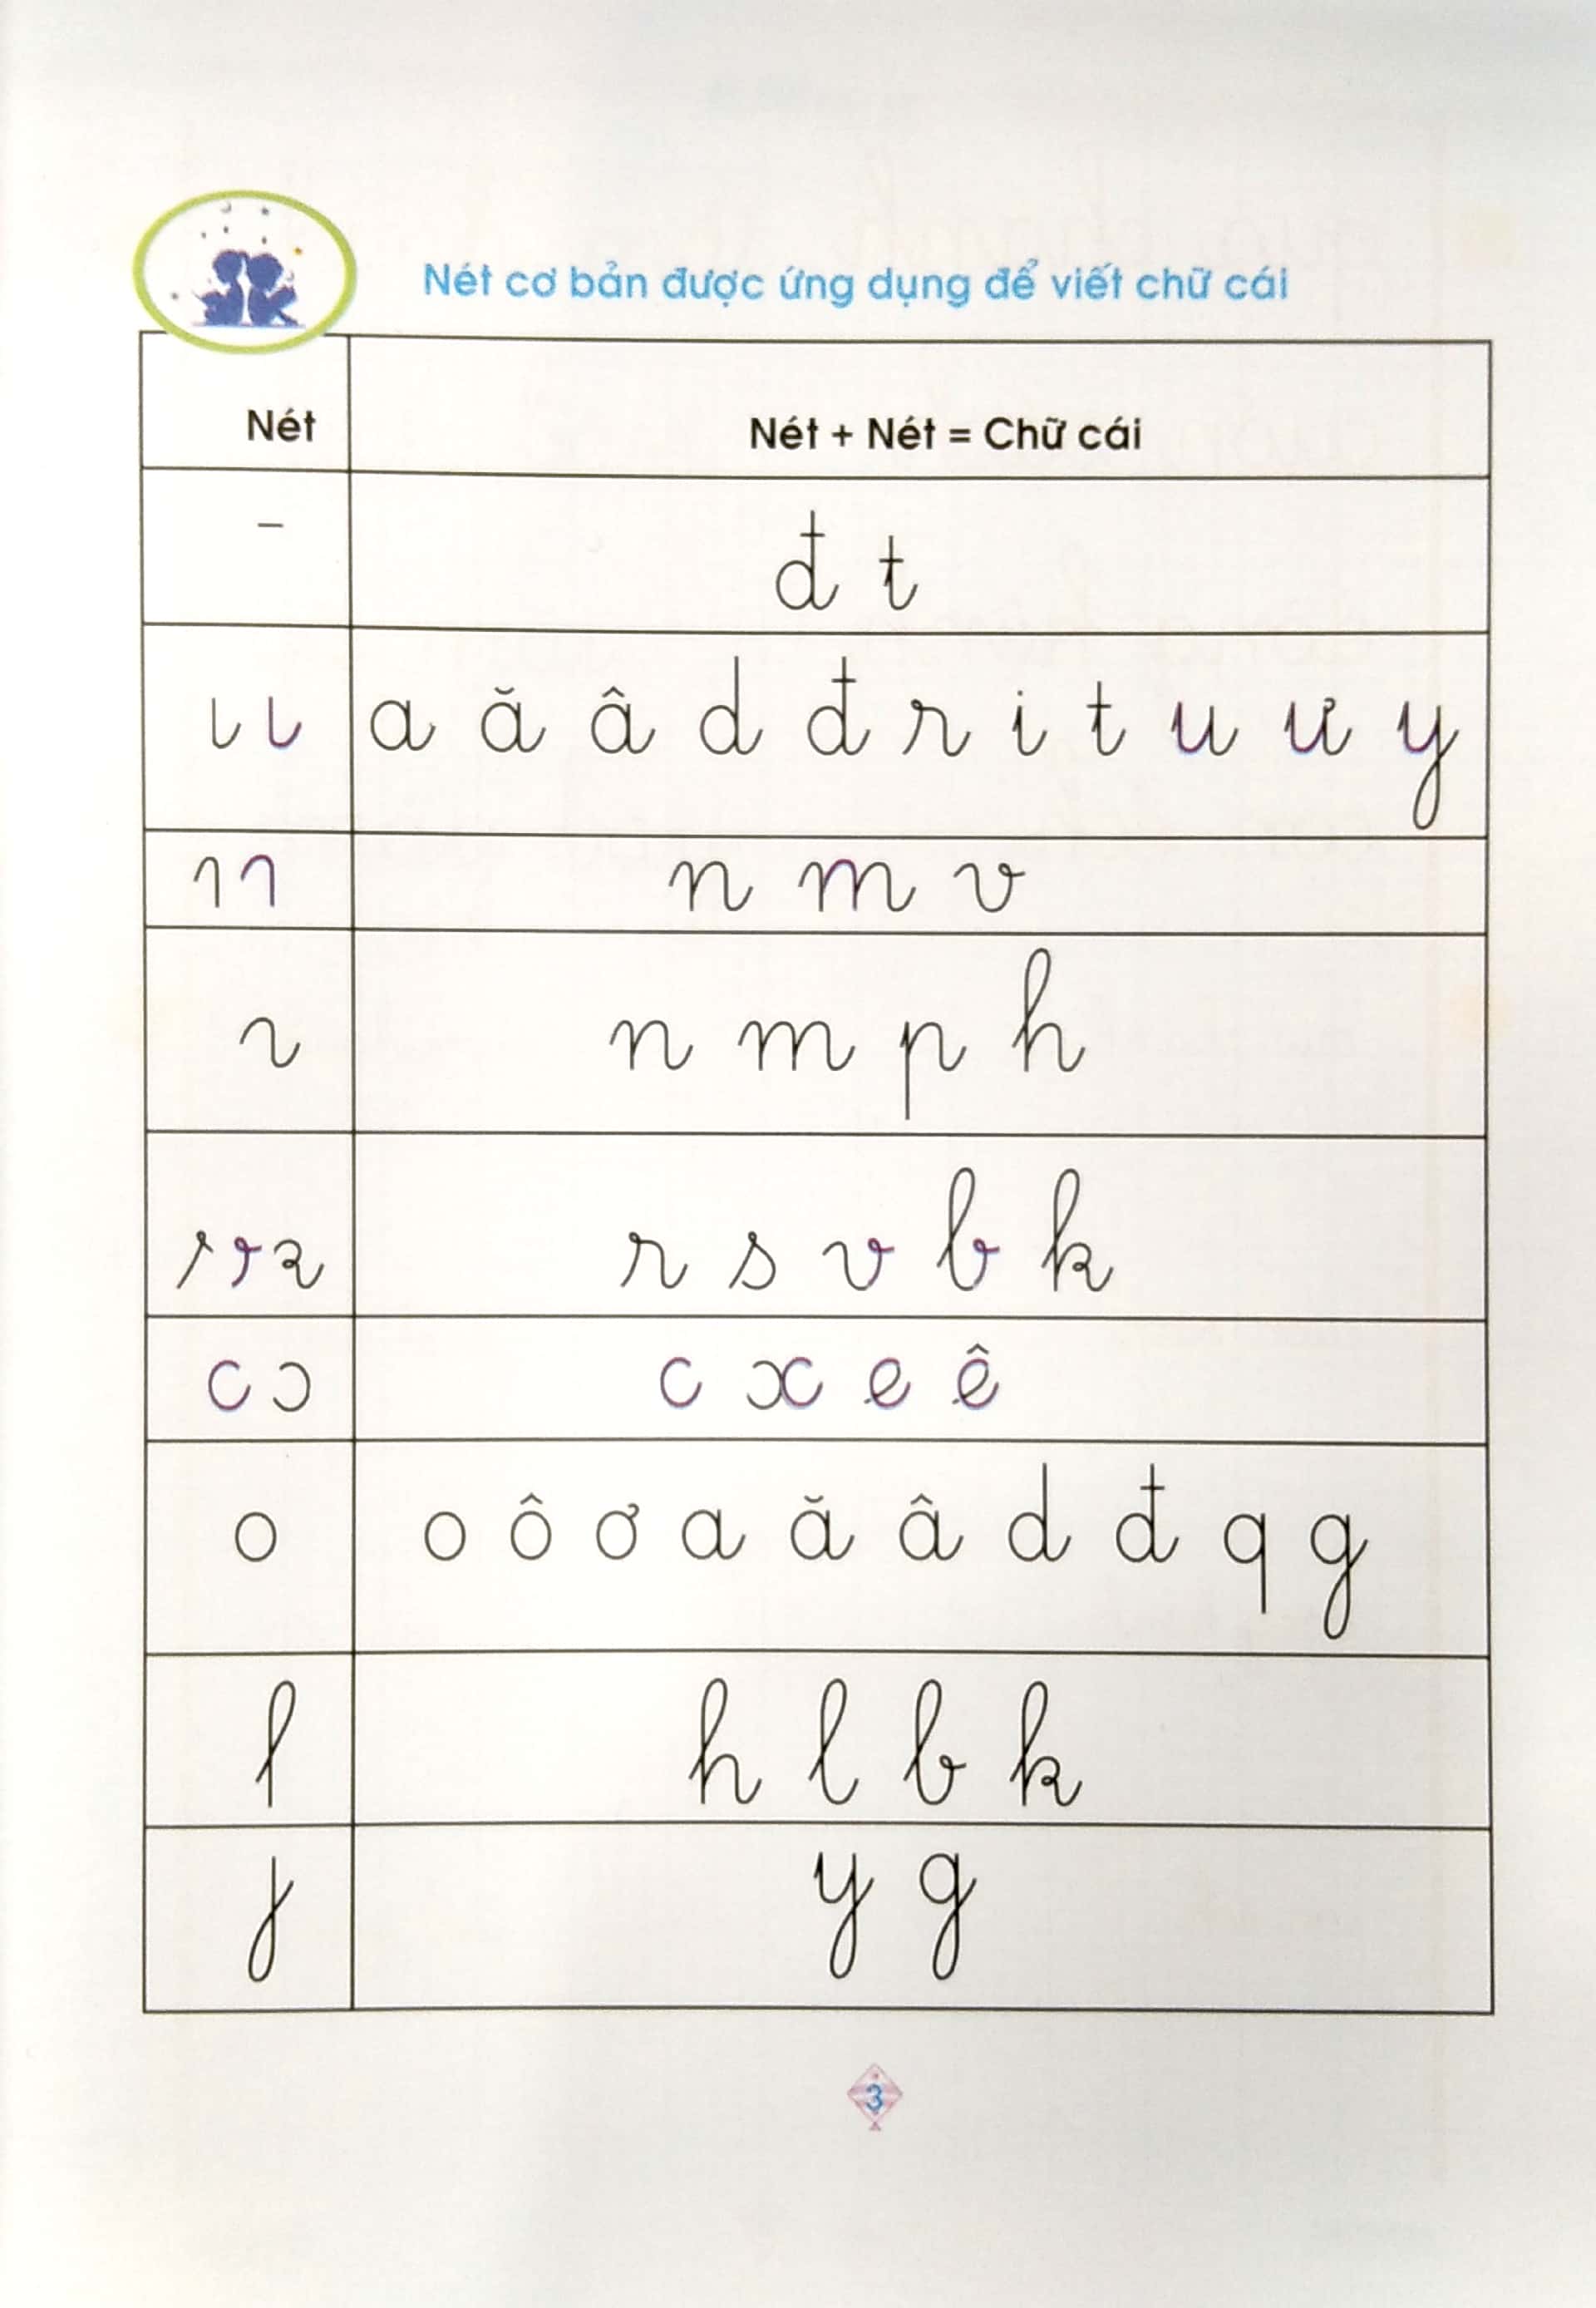 Nét cơ bản được ứng dụng để viết chữ cái
Nét
Nét + Nét = Chữ cái
đ t
a ă â d đ r i t u ư y
n m v
n m p h
r s v b k
c x e ê
o
o ô ơ a ă â d đ q g
h l b k
y g
3